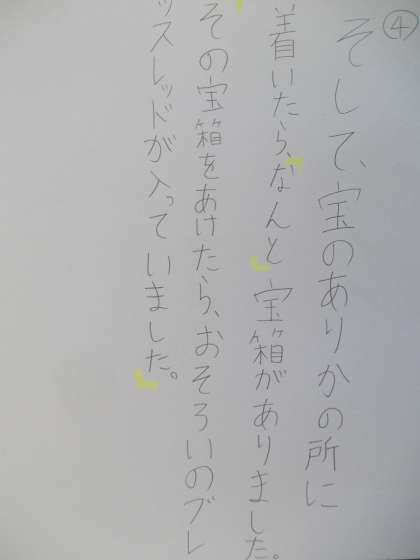 ④
そして、宝のありかの所に
着いたら、なんと宝箱がありました。
その宝箱をあけたら、おそろいのブレ
ッスレッドが入っていました。